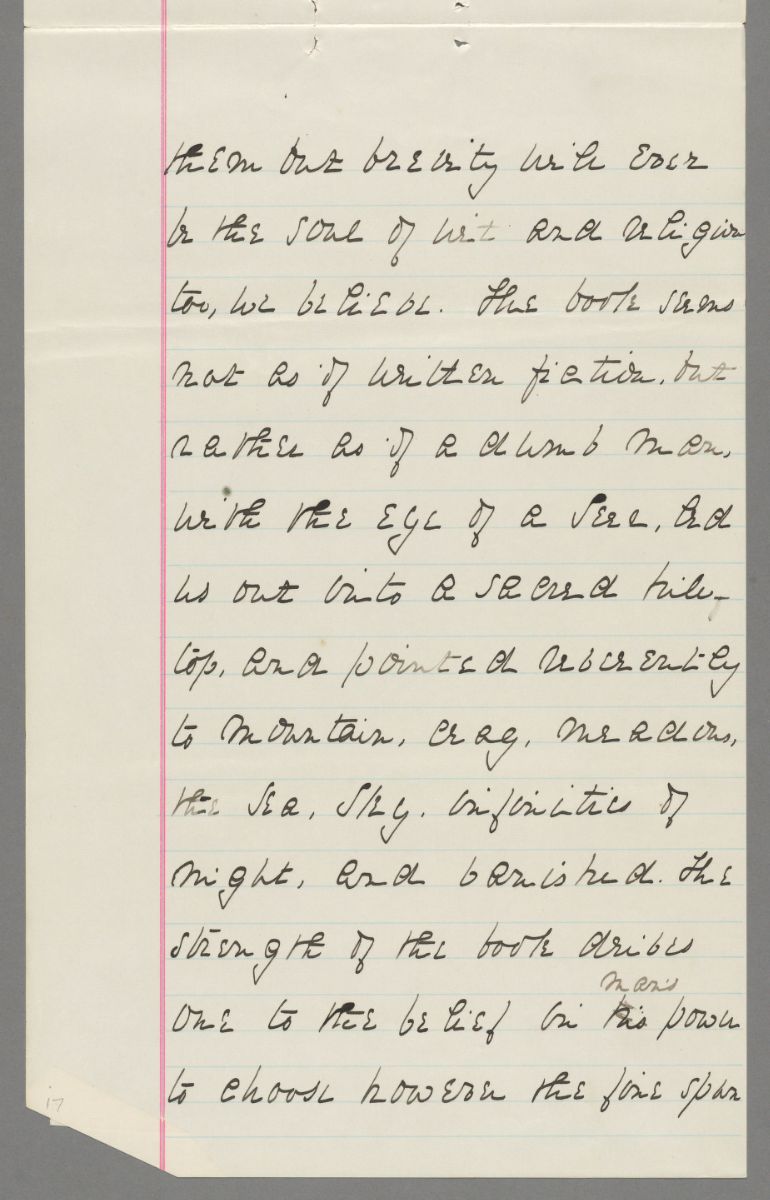 them but brevity will ever
be the soul of wit and religion
too, we believe. The book seems
not as of written fiction, but
rather as if a dumb man,
with the eye of a Seer, led
us out into a sacred hill-
top, and pointed reverently
to mountain, crag, meadows,
the Sea, Sky, infinities of
night, and vanished. The
strength of the book drives
man's
one to the belief in his power
to choose however the fine spun
17